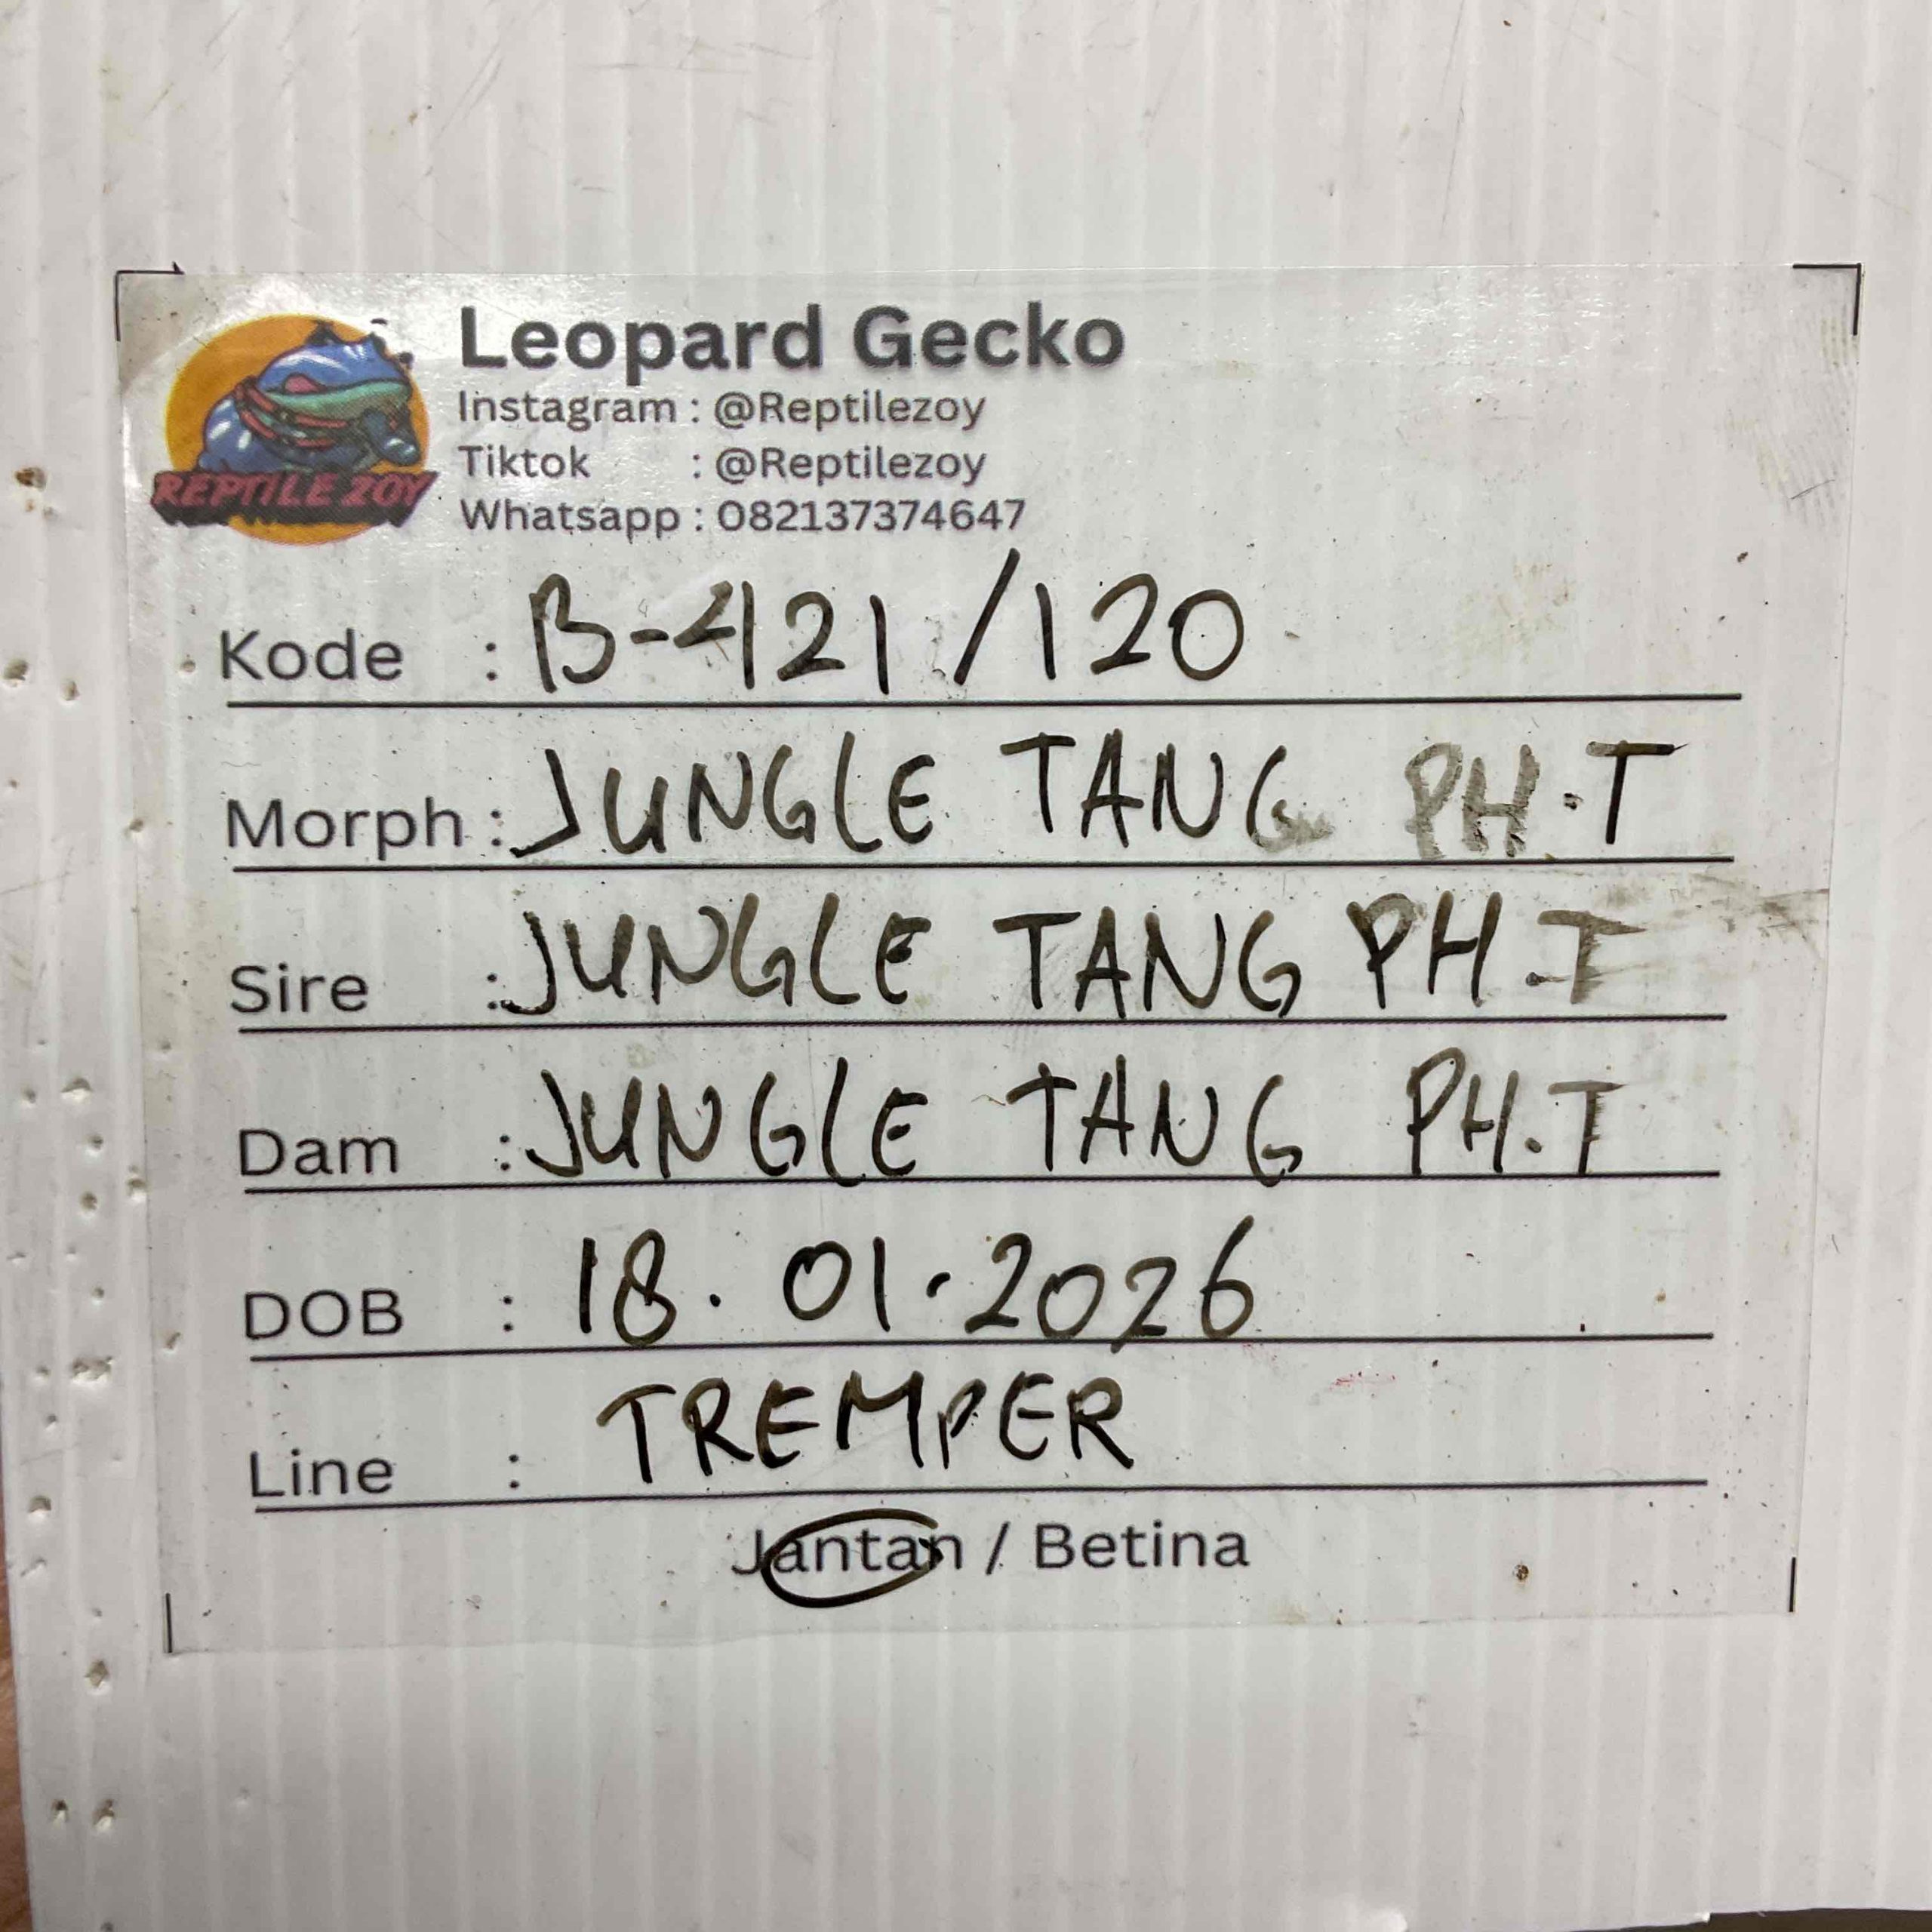 REPTILE ZOY
Leopard Gecko
Instagram : @Reptilezoy
Tiktok : @Reptilezoy
Whatsapp : 082137374647
Kode : B-421/120
Morph : JUNGLE TANG PH.T
Sire : JUNGLE TANG PH.T
Dam : JUNGLE TANG PH.T
DOB : 18.01.2026
Line : TREMPER
Jantan / Betina